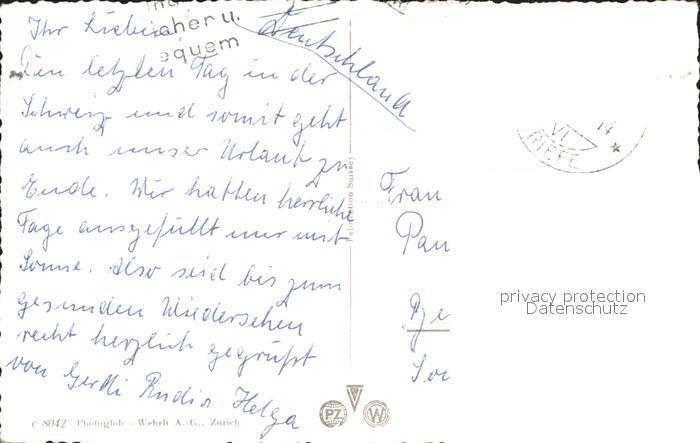 Deutschland
Ihr Lieben
aher u.
equem
Den letzten Tag in der
Schweiz und somit geht
auch unser Urlaub zu
Ende. Wir hatten herrliche
Tage ausgefüllt nur mit
Sonne. Also seid bis zum
gesunden Wiedersehen
recht herzlich gegrüßt
von Gerdi Rudi Helga
c 8042 Photoglob - Wehrli A.-G., Zürich
Fabrication Suisse
PZ
W
VI
14
Frau
Pau
privacy protection
Datenschutz